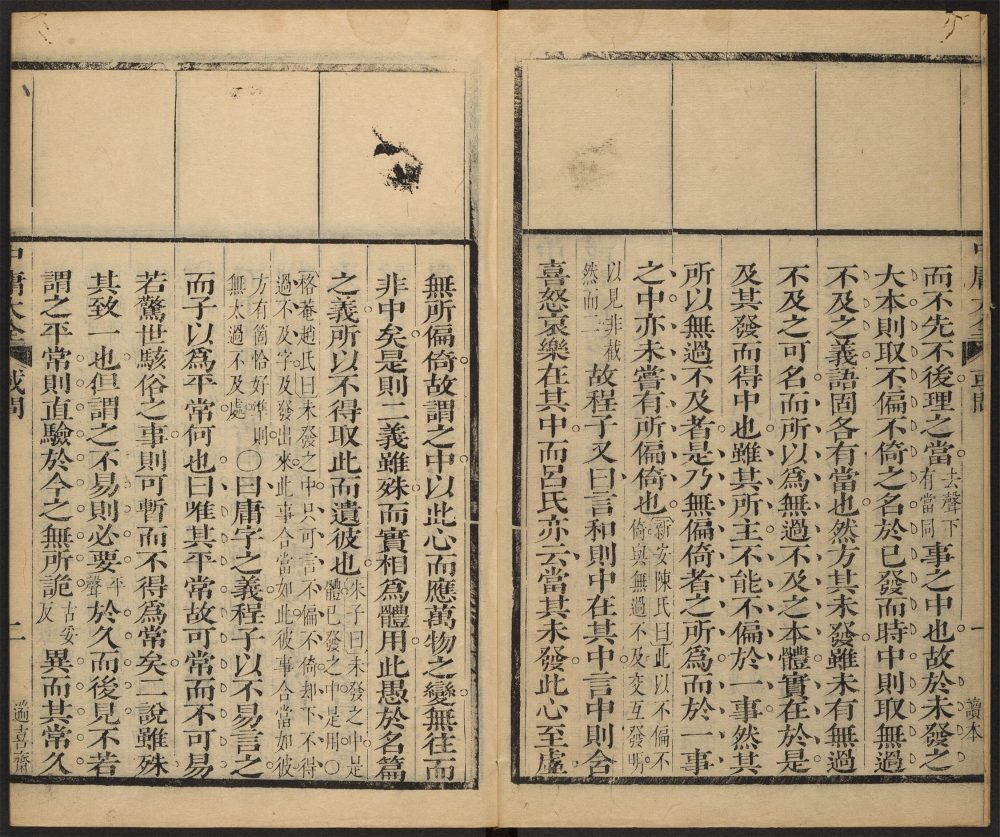 而不先不後理之當去聲下有當同事之中也故於未發之
大本則取不偏不倚之名於已發而時中則取無過
不及之義語固各有當也然方其未發雖未有無過
不及之可名而所以為無過不及之本體實在於是
及其發而得中也雖其所主不能不偏於一事然其
所以無過不及者是乃無偏倚者之所為而於一事
之中亦未嘗有所偏倚也新安陳氏曰此以不偏不
倚與無過不及交互發明
以見非截
然而二故程子又曰言和則中在其中言中則含
喜怒哀樂在其中而呂氏亦云當其未發此心至虛
中庸大全
或問
一
讀本
無所偏倚故謂之中以此心而應萬物之變無往而
非中矣是則二義雖殊而實相為體用此愚於名篇
之義所以不得取此而遺彼也朱子曰未發之中是
體已發之中是用〇
格菴趙氏曰未發之中只可言不偏不倚却下不得
過不及字及發出來此事合當如此彼事合當如彼
方有箇恰好準則
無太過不及處〇曰庸字之義程子以不易言之
而子以為平常何也曰唯其平常故可常而不可易
若驚世駭俗之事則可暫而不得為常矣二說雖殊
其致一也但謂之不易則必要平聲於久而後見不若
謂之平常則直驗於今之無所詭古委反異而其常久
中庸大全
或問
二
遜喜齋